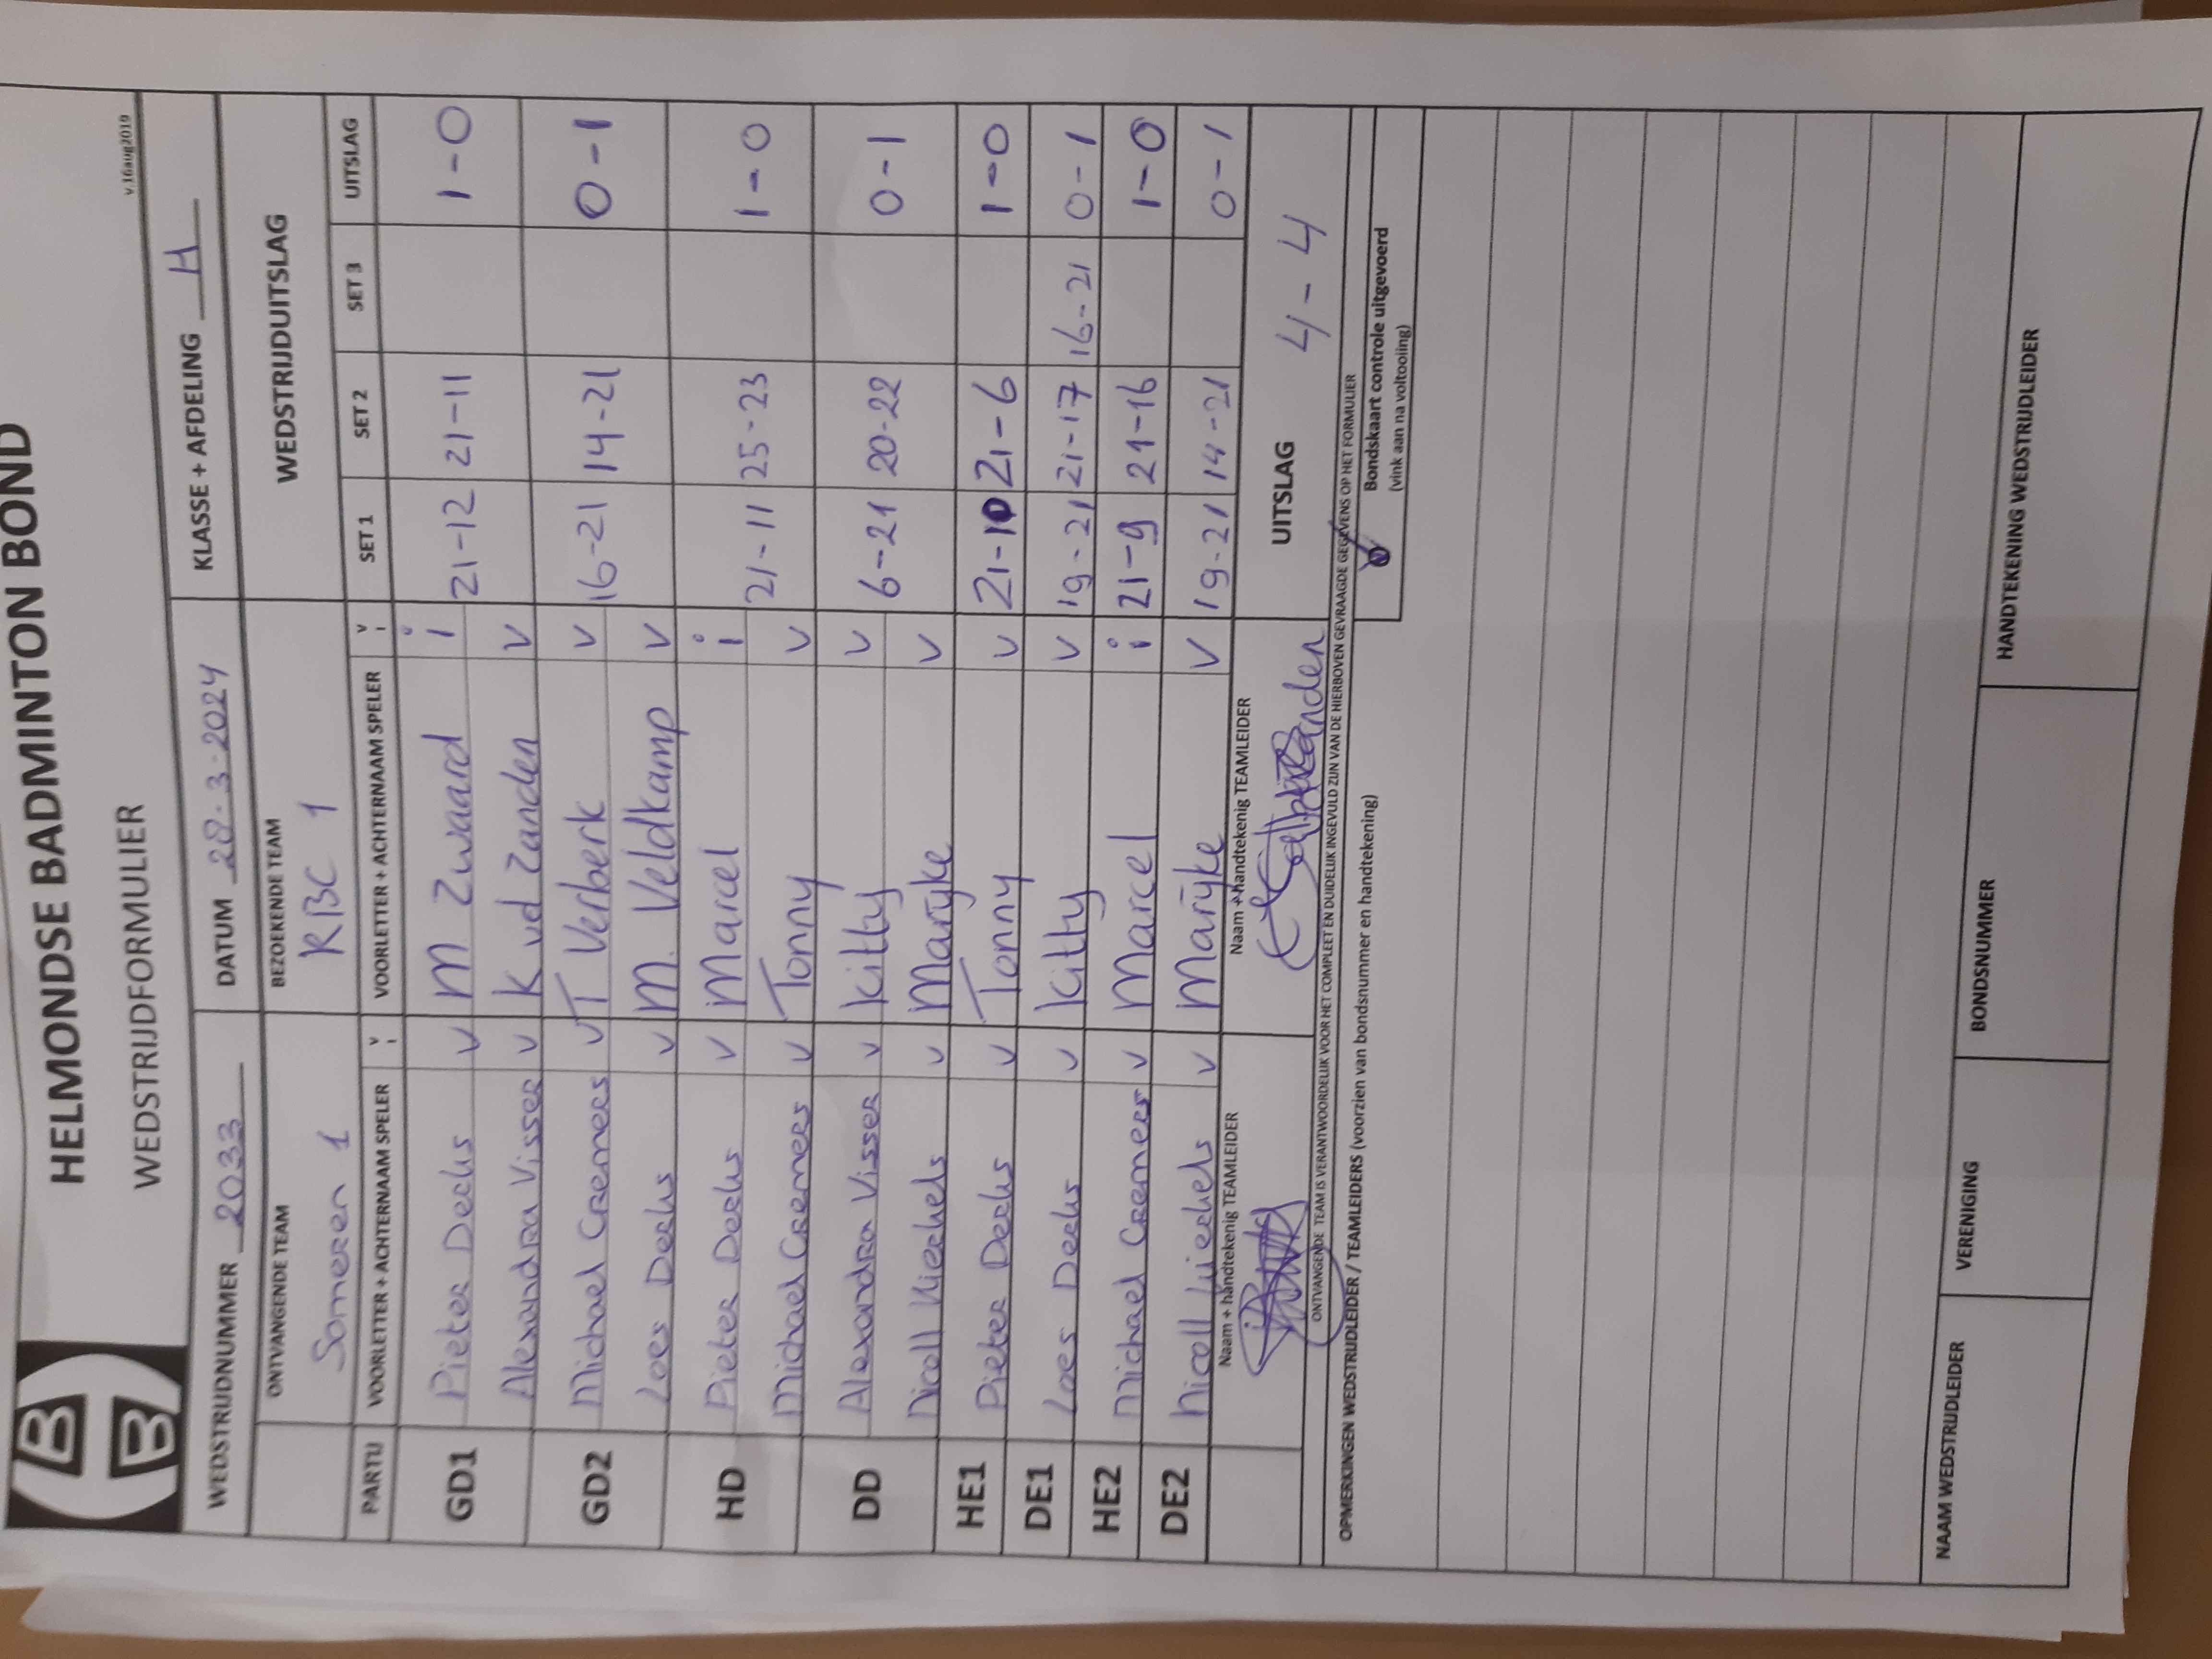 HELMONDSE BADMINTON BOND
WEDSTRIJDFORMULIER
v.16aug2019
WEDSTRIJDNUMMER 2033 DATUM 28-3-2024 KLASSE + AFDELING H
ONTVANGENDE TEAM BEZOEKENDE TEAM WEDSTRIJDUITSLAG
Someren 1 KBC 1
PARTIJ VOORLETTER + ACHTERNAAM SPELER V I VOORLETTER + ACHTERNAAM SPELER V I SET 1 SET 2 SET 3 UITSLAG
GD1 Pieter Derks v M Zwaard i 21-12 21-11 1-0
Alexandra Visser v K vd Zanden v
GD2 Michael Cremers v T Verberk v 16-21 14-21 0-1
Loes Derks v M. Veldkamp v
HD Pieter Derks v Marcel i 21-11 25-23 1-0
Michael Cremers v Tonny v
DD Alexandra Visser v Kitty v 6-21 20-22 0-1
Nicoll v Marijke v
HE1 Pieter Derks v Tonny v 21-10 21-6 1-0
DE1 Loes Derks v Kitty v 19-21 21-17 16-21 0-1
HE2 Michael Cremers v Marcel i 21-9 21-16 1-0
DE2 Nicoll v Marijke v 19-21 14-21 0-1
Naam + handtekenig TEAMLEIDER Naam + handtekenig TEAMLEIDER UITSLAG 4-4
ONTVANGENDE TEAM IS VERANTWOORDELIJK VOOR HET COMPLEET EN DUIDELIJK INGEVULD ZIJN VAN DE HIERBOVEN GEVRAAGDE GEGEVENS OP HET FORMULIER
OPMERKINGEN WEDSTRIJDLEIDER / TEAMLEIDERS (voorzien van bondsnummer en handtekening)
Bondskaart controle uitgevoerd
(vink aan na voltooiing)
NAAM WEDSTRIJDLEIDER VERENIGING BONDSNUMMER HANDTEKENING WEDSTRIJDLEIDER